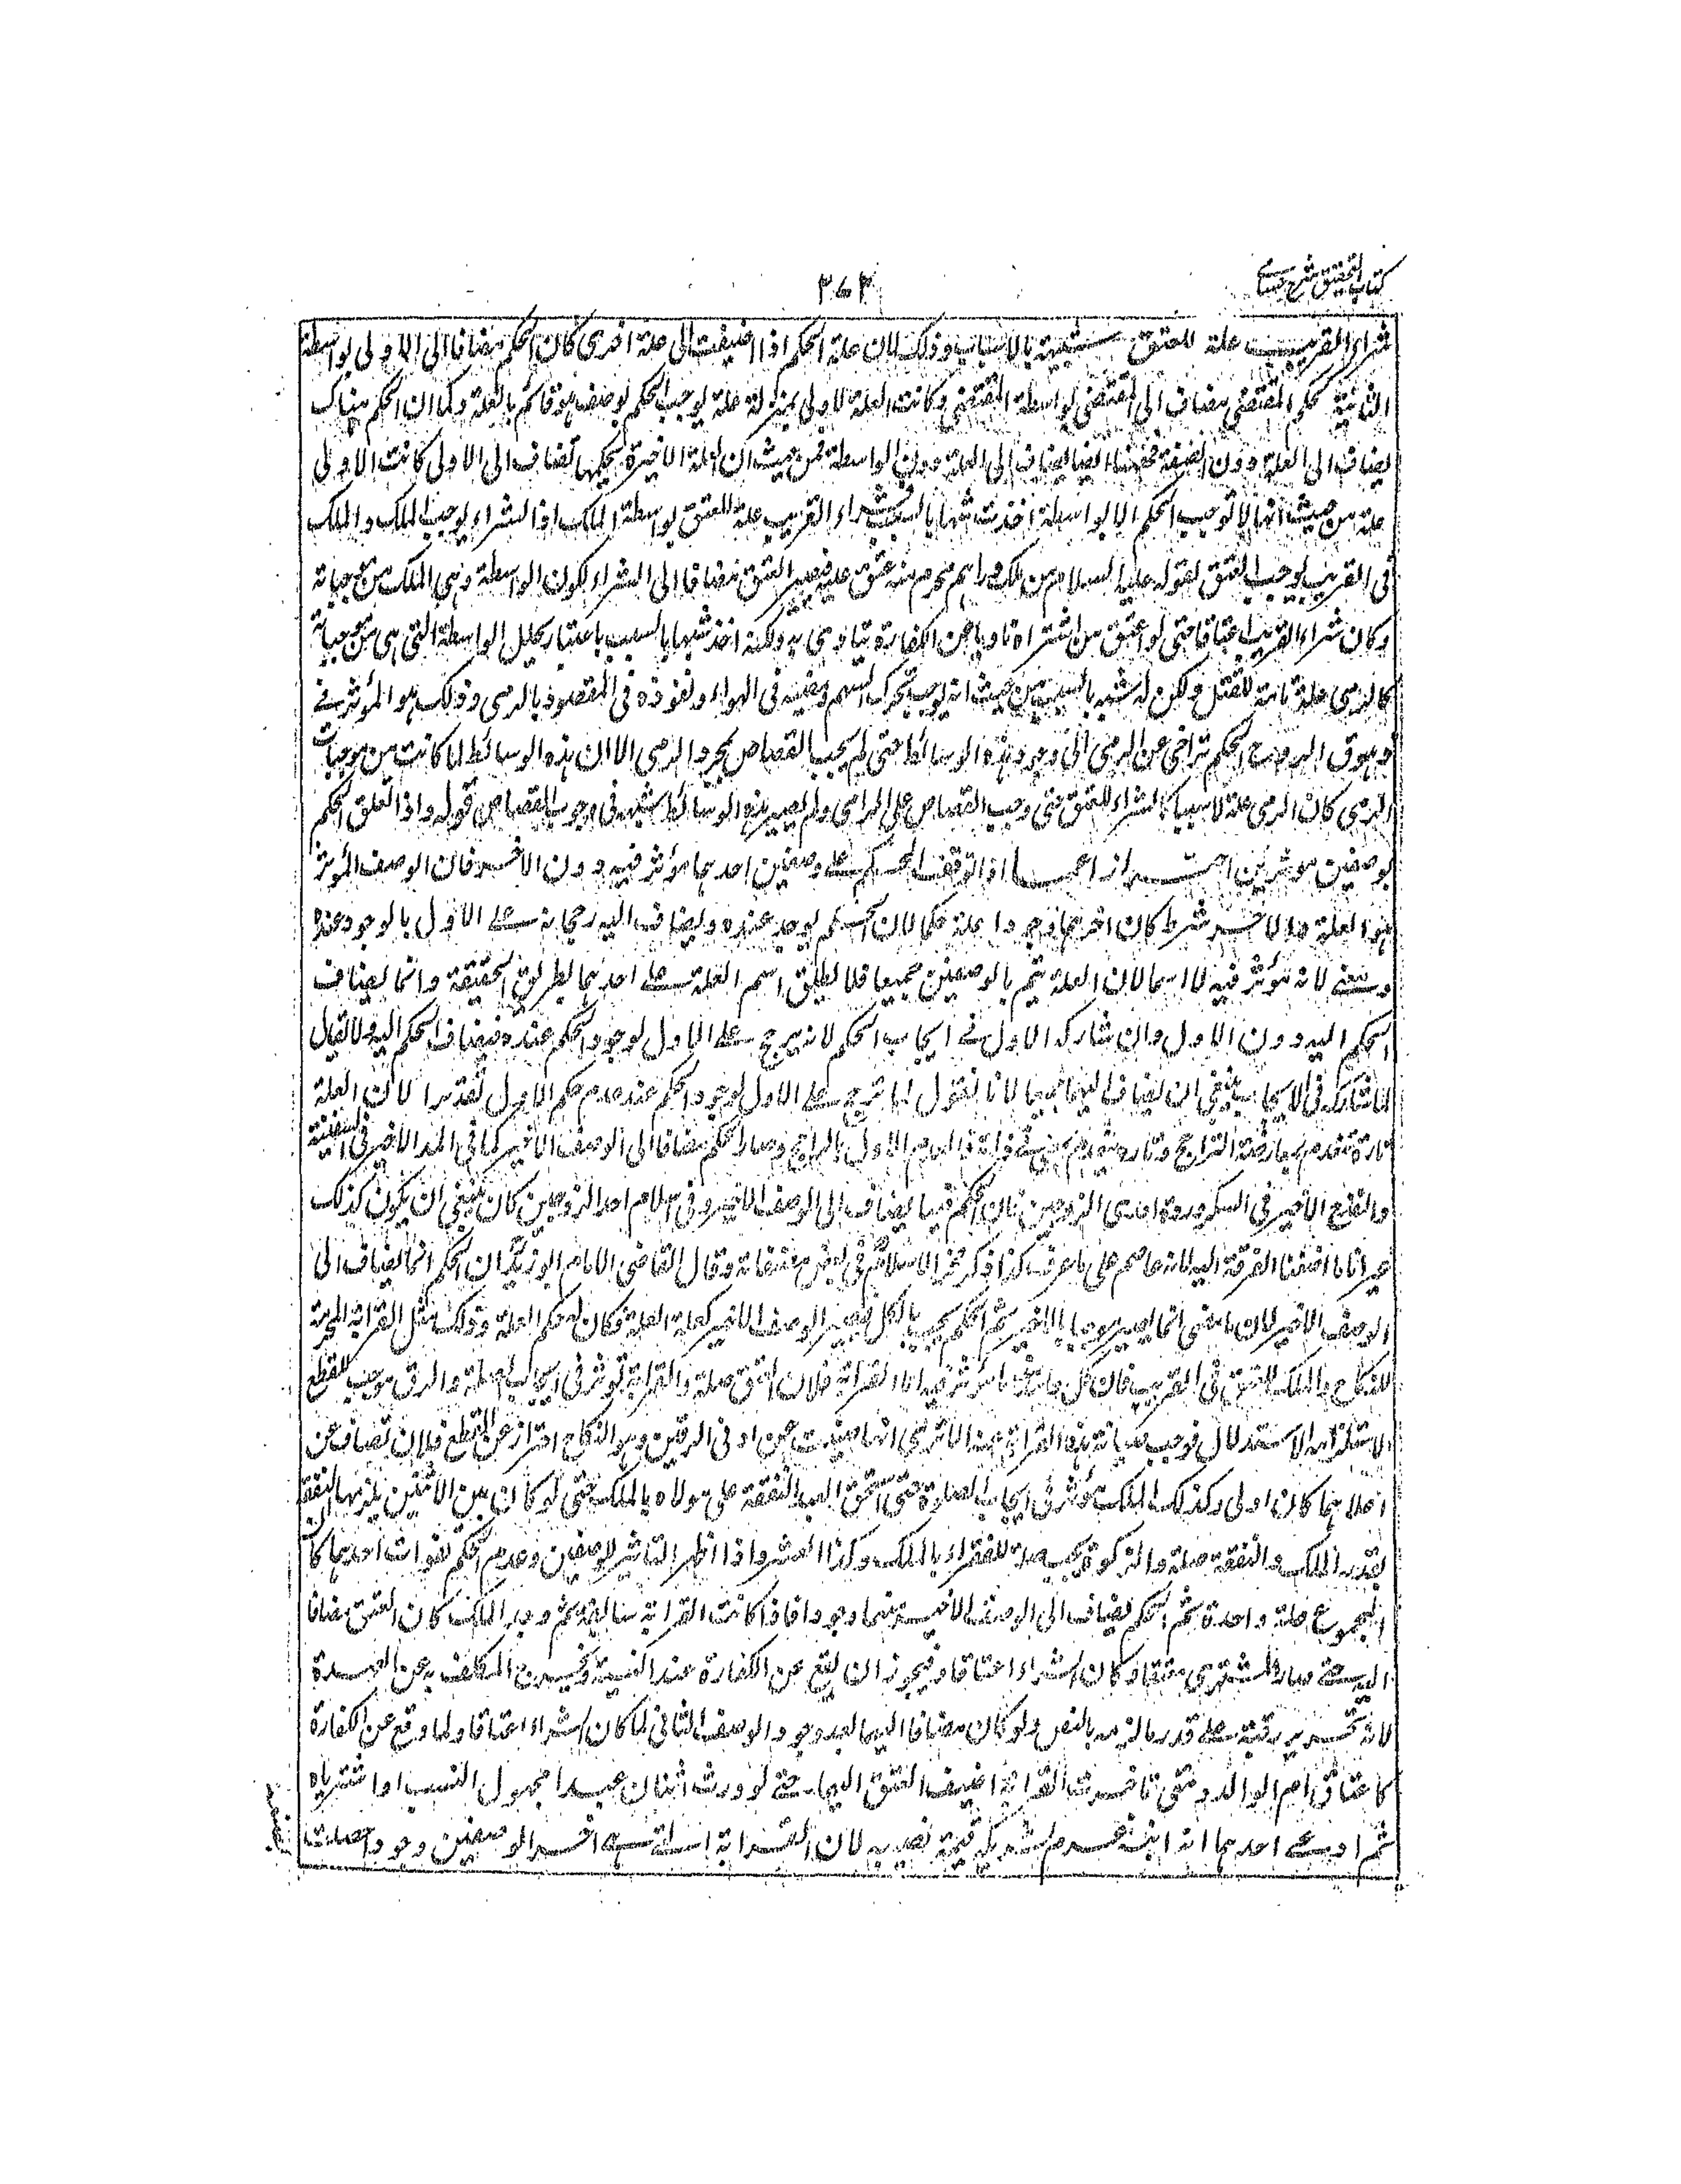 كتاب التحقيق شرح حسامي
٣٦٣
شراء القريب علة للعتق شبيهة بالاسباب وذلك لان علة الحكم اذا اضيفت الى علة اخرى كان الحكم مضافا الى الاولى بواسطة
الثانية كحكم المقتضى مضاف الى المقتضي بواسطة المقتضى وكانت العلة الاولى بمنزلة علة يوجب الحكم بوصف هو قائم بالعلة وكما ان الحكم هناك
يضاف الى العلة دون الصفة فههنا ايضا يضاف الى العلة دون الواسطة فمن حيث ان العلة الاخيرة بحكمها تضاف الى الاولى كانت الاولى
علة من حيث انها لا توجب الحكم الا بواسطة اخذت شبها بالسبب فشراء القريب علة للعتق بواسطة الملك اذ الشراء يوجب الملك والملك
في القريب يوجب العتق لقوله عليه السلام من ملك ذا رحم محرم منه عتق عليه فيصير العتق مضافا الى الشراء لكون الواسطة وهي الملك من موجباته
وكان شراء القريب اعتاقا حتى لو اعتق من اشتراه ناويا عن الكفارة تتادى به ولكنه اخذ شبها بالسبب باعتبار تخلل الواسطة التي هي من موجباته
كالرمي علة تامة للقتل ولكن له شبه بالسبب من حيث انه يوجب تحرك السهم ومضيه في الهواء ونفوذه في المقصود بالرمي وذلك هو المؤثر في
زهوق الروح الحكم تراخى عن الرمي الى وجود هذه الوسائط حتى لم يجب القصاص بمجرد الرمي الا ان هذه الوسائط لما كانت من موجبات
الرمي كان الرمي علة لا سببا كالشراء للعتق حتى وجب القصاص على الرامي ولم يصير هذه الوسائط شبهة في وجوب القصاص قوله واذا تعلق الحكم
بوصفين مؤثرين احتراز عما اذا توقف الحكم على وصفين احدهما مؤثر فيه دون الاخر فان الوصف المؤثر
هو العلة والاخر شرط كان اخرهما وجودا علة حكما لان الحكم يوجد عنده ويضاف اليه رجحانه على الاول بالوجود عنده
ومعنى لانه مؤثر فيه لا اسما لان العلة يتم بالوصفين جميعا فلا يطلق اسم العلة على احدهما بطريق الحقيقة وانما يضاف
الحكم اليه دون الاول وان شاركه الاول في ايجاب الحكم لانه يرجح على الاول لوجود الحكم عنده فيضاف الحكم اليه ولا يقال
لما شاركه في الايجاب ينبغي ان يضاف اليهما جميعا لانا نقول لما ترجح على الاول لوجود الحكم عنده عدم حكم الاول تقديرا لان العلة
تارة تنعدم بمعارضة الراجح وتارة بعدم فانعدم الاول بالراجح وصار الحكم مضافا الى الوصف الاخير كما في المد الاخير في السفينة
والقدح الاخير في السكر وردة احدى الزوجين فان الحكم فيها يضاف الى الوصف الاخير وفي اسلام احد الزوجين كان ينبغي ان يكون كذلك
غير انا ما اضفنا الفرقة اليه لانه عاصم على ما عرف كذا ذكر فخر الاسلام في بعض مصنفاته وقال القاضي الامام ابو زيد ان الحكم انما يضاف الى
الوصف الاخير لان ما مضى انما يصير موجبا بالاخير ثم الحكم يجب بالكل فيصير الوصف الاخير كعلة العلة فكان له حكم العلة وذلك مثل القرابة المحرمة
للنكاح والملك للعتق في القريب فان كل واحد مؤثر فيه اما القرابة فلان العتق صلة والقرابة تؤثر في ايجاب الصلة والرق موجب للقطع
والاستذلال فوجب صيانة هذه القرابة عنه الا ترى انها صينت عن ادنى الرقين وهو النكاح احترازا عن القطع فلان تصان عن
اعلاهما كان اولى وكذلك الملك مؤثر في ايجاب الصلة حتى استحق العبد النفقة على مولاه بالملك حتى لو كان بين الاثنين يلزمهما النفقة
بقدر الملك والنفقة صلة والزكوة يجب صلة للفقراء بالملك وكذا العشر واذا ظهر التاثير للوصفين وعدم الحكم بفوات احدهما كان
المجموع علة واحدة ثم الحكم يضاف الى الوصف الاخير منهما وجودا فاذا كانت القرابة سابقة ثم وجد الملك كان العتق مضافا
اليه حتى صار المشتري معتقا وكان الشراء اعتاقا فيجوز ان يقع عن الكفارة عند النية ويخرج المكلف به عن العهدة
لانه تحرير رقبة على قدر ما لزمه بالنص ولو كان مضافا اليهما بعد وجود الوصف الثاني لما كان الشراء اعتاقا ولما وقع عن الكفارة
كاعتاق ام الولد ومتى تاخرت القرابة اضيف العتق اليها حتى لو ورث اثنان عبدا مجهول النسب او اشترياه
ثم ادعى احدهما انه ابنه غرم لشريكه قيمة نصيبه لان القرابة اسلته هي اخر الوصفين وجودا حصلت